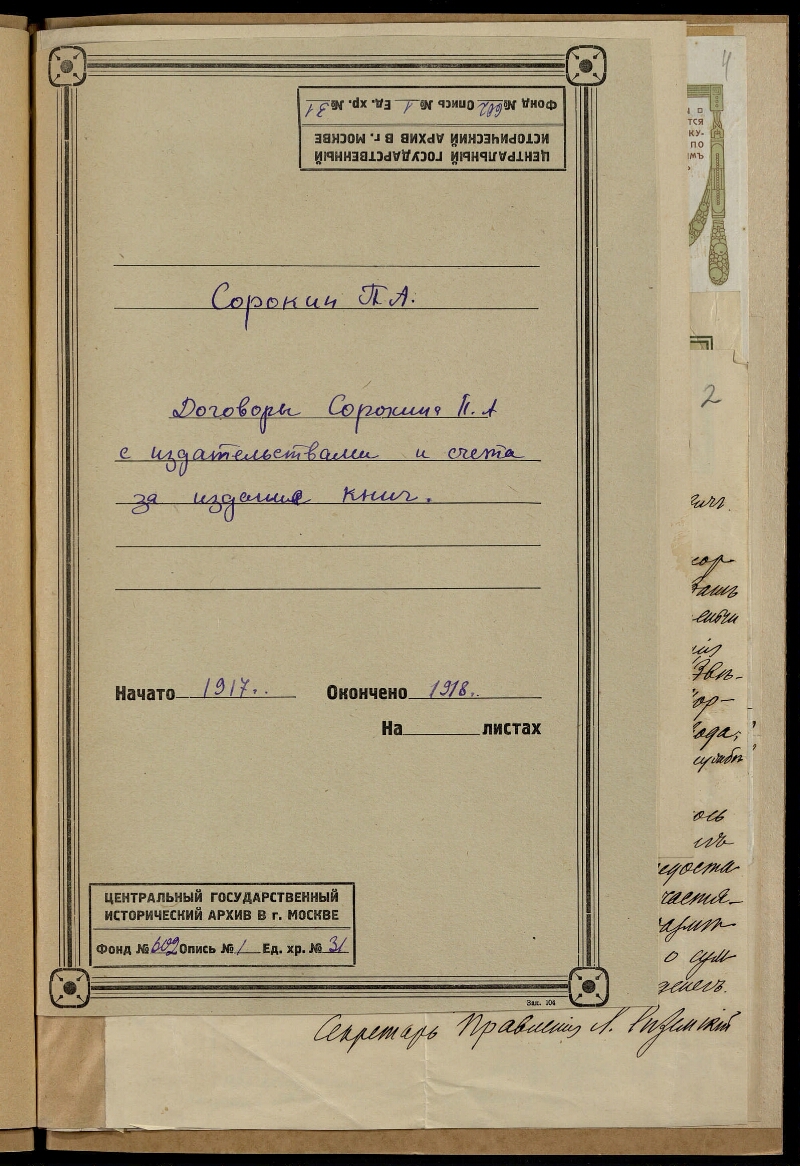 4
ТСЯ
КУ-
ПО
ИМЪ
ЦЕНТРАЛЬНЫЙ ГОСУДАРСТВЕННЫЙ
ИСТОРИЧЕСКИЙ АРХИВ В г. МОСКВЕ
Фонд № 602 Опись № 1 Ед. хр. № 31
Сорокин П.А.
Договоры Сорокина П.А
с издательствами и счета
за издание книг.
2
Начато 1917г. Окончено 1918г.
На листах
ЦЕНТРАЛЬНЫЙ ГОСУДАРСТВЕННЫЙ
ИСТОРИЧЕСКИЙ АРХИВ В г. МОСКВЕ
Фонд № 602 Опись № 1 Ед. хр. № 31
Зак. 104
ода,
ось
едоста
части-
о сум
денегъ.
Секретарь Правления